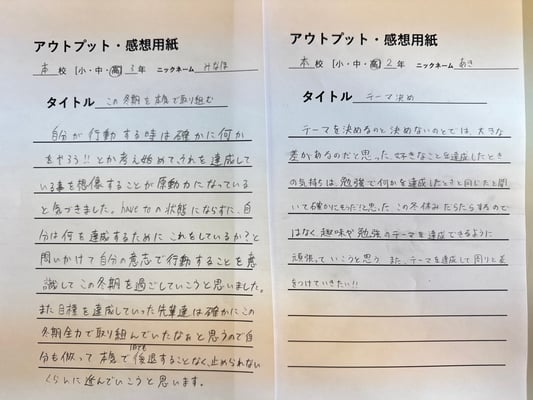 アウトプット・感想用紙
本 校 [小・中・高] 3 年 ニックネーム みなほ
タイトル この冬期を本気で取り組む
自分が行動する時は確かに何か
をやろう!!とか考え始めて、それを達成して
いる事を想像することが原動力になっている
と気づきました。have toの状態にならずに、自
分は何を達成するためにこれをしているか?と
問いかけて自分の意志で行動することを意
識してこの冬期を過ごしていこうと思いました。
また目標を達成していった先輩達は確かにこの
冬期全力で取り組んでいたなぁと思うので自
分も倣って本気で後退することなく、止められない
くらいに進んでいこうと思います。
アウトプット・感想用紙
本 校 [小・中・高] 2 年 ニックネーム あき
タイトル テーマ決め
テーマを決めるのと決めないのとでは、大きな
差があるのだと思った。好きなことを達成したとき
の気持ちは、勉強で何かを達成したときと同じだと聞
いて確かにもったと思った。この冬休みだらだらするので
はなく、趣味や勉強のテーマを達成できるように
頑張っていこうと思う。また、テーマを達成して周りと差
をつけていきたい!!